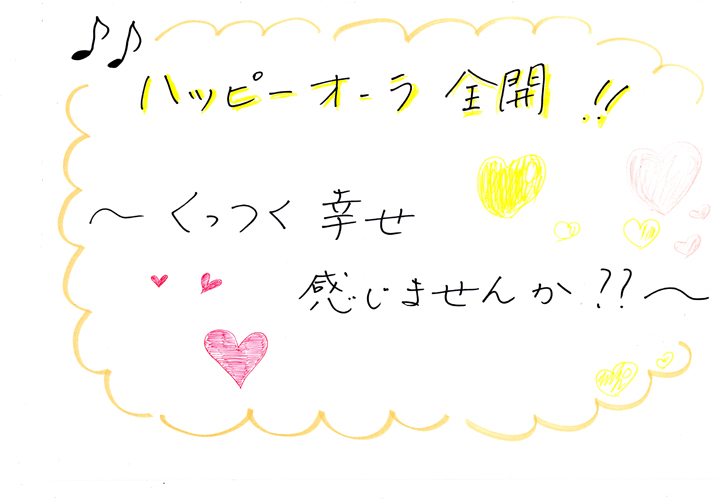 ハッピーオーラ 全開 !!
〜くっつく幸せ
感じませんか??〜